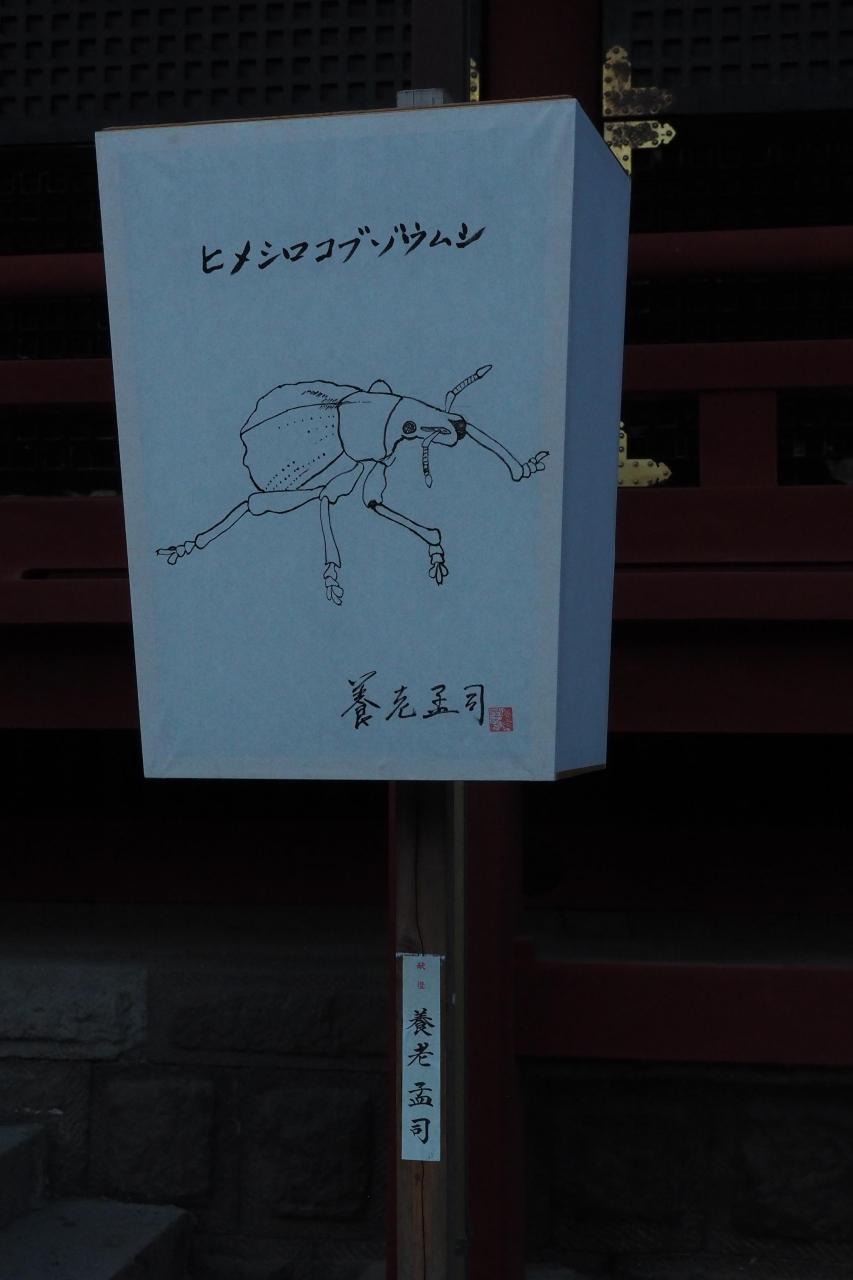 ヒメシロコブゾウムシ
養老孟司
献燈
養老孟司